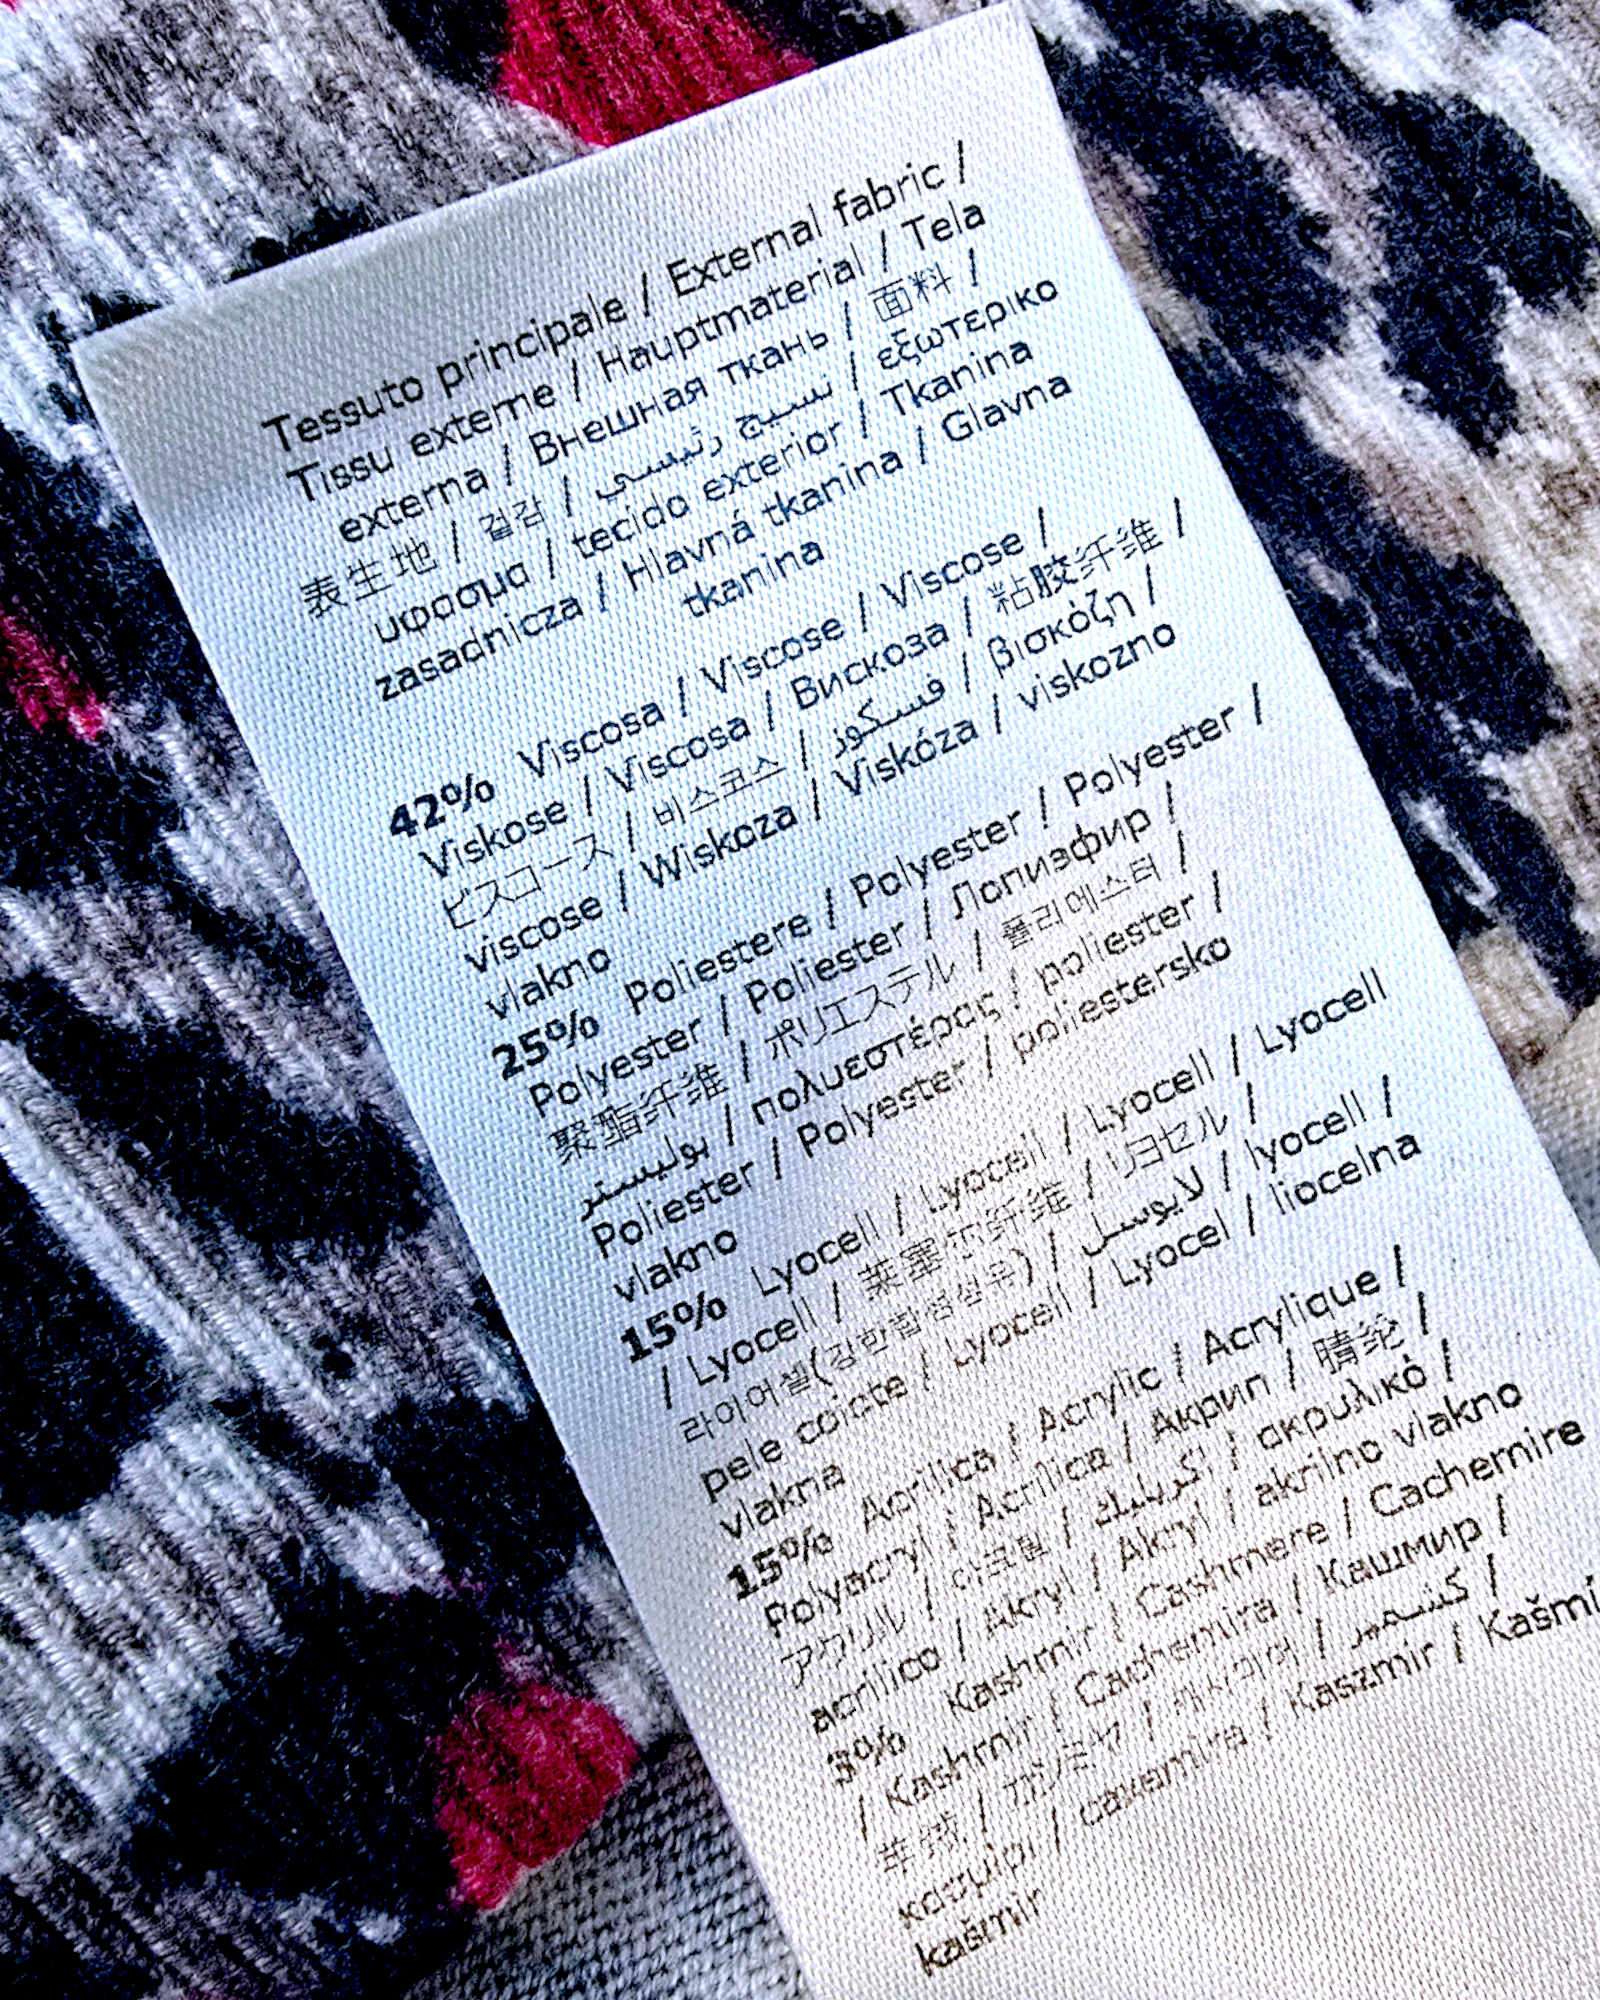 Tessuto principale / External fabric /
Tissu externe / Hauptmaterial / Tela
externa / Внешная ткань / 面料 /
表生地 / 겉감 / نسيج رئيسي / εξωτερικο
υφασμα / tecido exterior / Tkanina
zasadnicza / Hlavná tkanina / Glavna
tkanina
42% Viscosa / Viscose / Viscose /
Viskose / Viscosa / Вискоза / 粘胶纤维 /
ビスコース / 비스코스 / فسكوز / βισκόζη /
viscose / Wiskoza / Viskóza / viskozno
vlakno
25% Poliestere / Polyester / Polyester /
Polyester / Poliester / Полиэфир /
聚酯纤维 / ポリエステル / 폴리에스터 /
بوليستر / πολυεστέρας / poliester /
Poliester / Polyester / poliestersko
vlakno
15% Lyocell / Lyocell / Lyocell / Lyocell
/ Lyocell / 莱塞尔纤维 / リヨセル /
라이어셀(강한합성섬유) / لايوسل / lyocell /
pele coicte / Lyocell / Lyocel / liocelna
vlakna
15% Acrilica / Acrylic / Acrylique /
Polyacryl / Acrilica / Акрил / 腈纶 /
アクリル / 아크릴 / اكريليك / ακρυλικό /
acrilico / Akryl / Akryl / akrilno vlakno
3% Kashmir / Cashmere / Cachemire
/ Kashmir / Cachemira / Кашмир /
羊绒 / カシミヤ / 캐시미어 / كشمير /
κασμιρι / caxemira / Kaszmir / Kašmí
kašmir